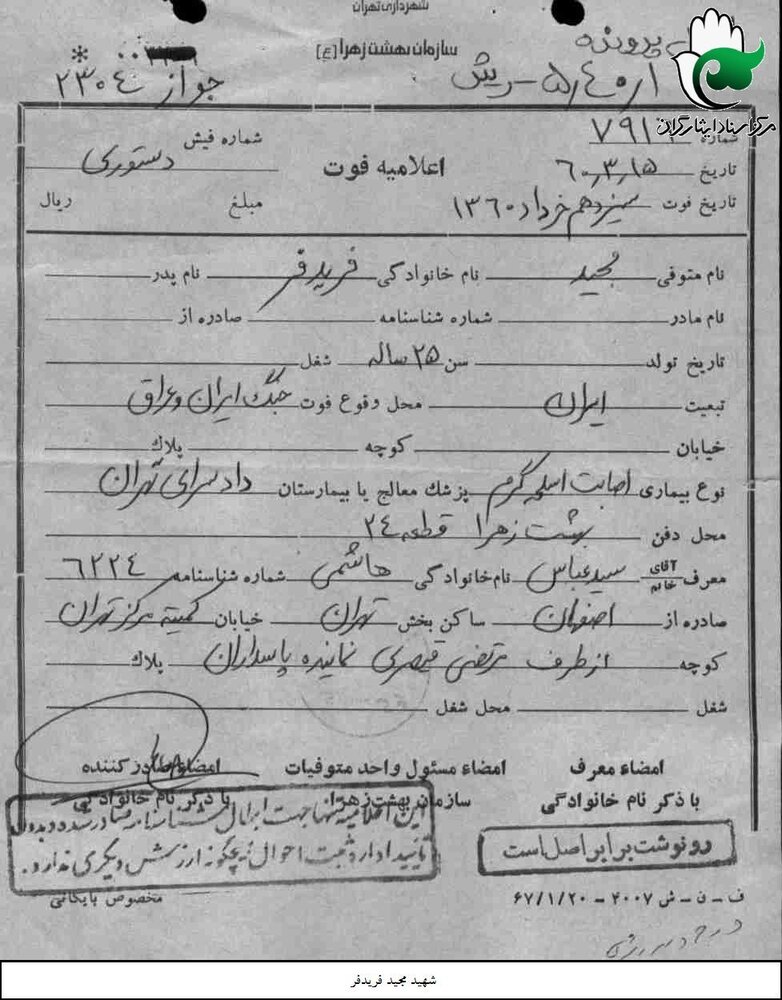 شهرداری تهران
سازمان بهشت زهرا (ع)
پرونده
جواز ۲۳۰۴ *
مرکز اسناد ایثارگران
شماره ۷۹۱
شماره فیش دستوری
اعلامیه فوت
تاریخ ۶۰,۳,۱۵
تاریخ فوت سیزدهم خرداد ۱۳۶۰ مبلغ ریال
نام متوفی مجید نام خانوادگی فریدفر نام پدر
نام مادر شماره شناسنامه صادره از
تاریخ تولد سن ۲۵ ساله شغل
تبعیت ایران محل وقوع فوت جنگ ایران و عراق
خیابان کوچه پلاك
نوع بیماری اصابت اسلحه گرم پزشك معالج یا بیمارستان دادسرای تهران
محل دفن بهشت زهرا قطعه ۲۴
معرف آقای خانم سید عباس نام خانوادگی هاشمی شماره شناسنامه ۶۲۲۴
صادره از اصفهان ساکن بخش تهران خیابان کمیته مرکز تهران
کوچه از طرف مرتضی قیصری نماینده پاسداران پلاك
شغل محل شغل
امضاء معرف امضاء مسئول واحد متوفیات امضاء صادر کننده
با ذکر نام خانوادگی سازمان بهشت زهرا با ذکر نام خانوادگی
این اعلامیه تنها جهت ابطال شناسنامه صادر شده و بدون
تأیید اداره ثبت احوال هیچگونه ارزش دیگری ندارد.
رونوشت برابر اصل است
مخصوص بایگانی
ف - ن - ش ۴۰۰۷ - ۶۷/۱/۲۰
شهید مجید فریدفر